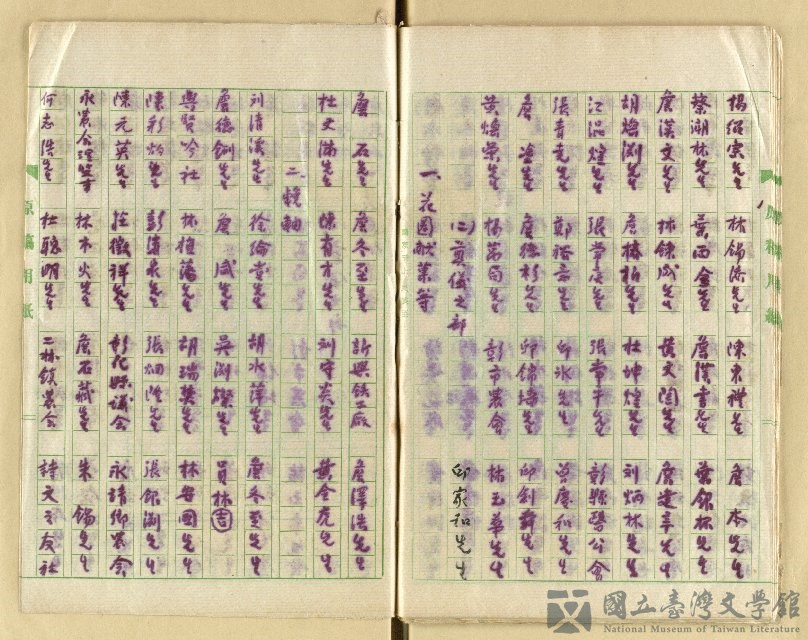 楊紹宗先生 林錫添先生 陳東禮先生 詹本先生
蔡湖林先生 葉西金先生 詹漢書先生 葉銀林先生
詹漢文先生 林錬成先生 黃文閣先生 詹建章先生
胡煥淵先生 詹椿柏先生 杜坤煌先生 刘炳林先生
江混煌先生 張先生 張常平先生 彰縣醫公會
張先生 鄭先生 邱水先生 曾慶和先生
詹塗先生 詹德杉先生 邱錦培先生 邱釗舜先生
黃煥榮先生 楊萬石先生 彰市農會 林玉華先生
邱家和先生
(二)奠儀之部
一、花圈献菓等
詹石先生 詹冬至先生 新興鉄工廠 詹澤浩先生
杜文瑞先生 陳有才先生 刘守炎先生 黃全克先生
二、輓軸
刘清溪先生 徐先生 胡水萍先生 詹冬至先生
詹德釧先生 詹成先生 吳淵燦先生 員林吉
興賢吟社 林植藩先生 胡瑞英先生 林安國先生
陳彩灼先生 彭清永先生 張炳隆先生 張銀淵先生
陳元英先生 徵祥先生 彰化縣議会 永靖鄉農会
永農会 林木火先生 詹石藏先生 朱錫先生
何志浩先生 杜聰明先生 二林鎮農会 詩文之友社
原稿用紙
國立臺灣文学館
National Museum of Taiwan Literature